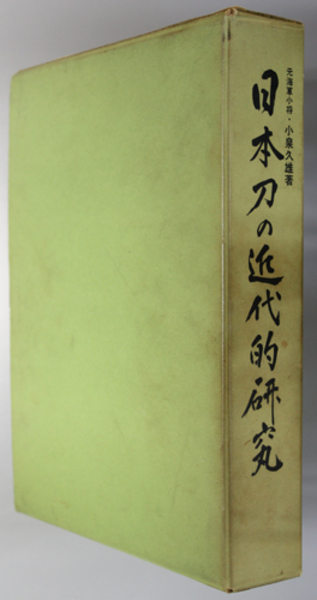 元海軍小将・小泉久雄著
日本刀の近代的研究